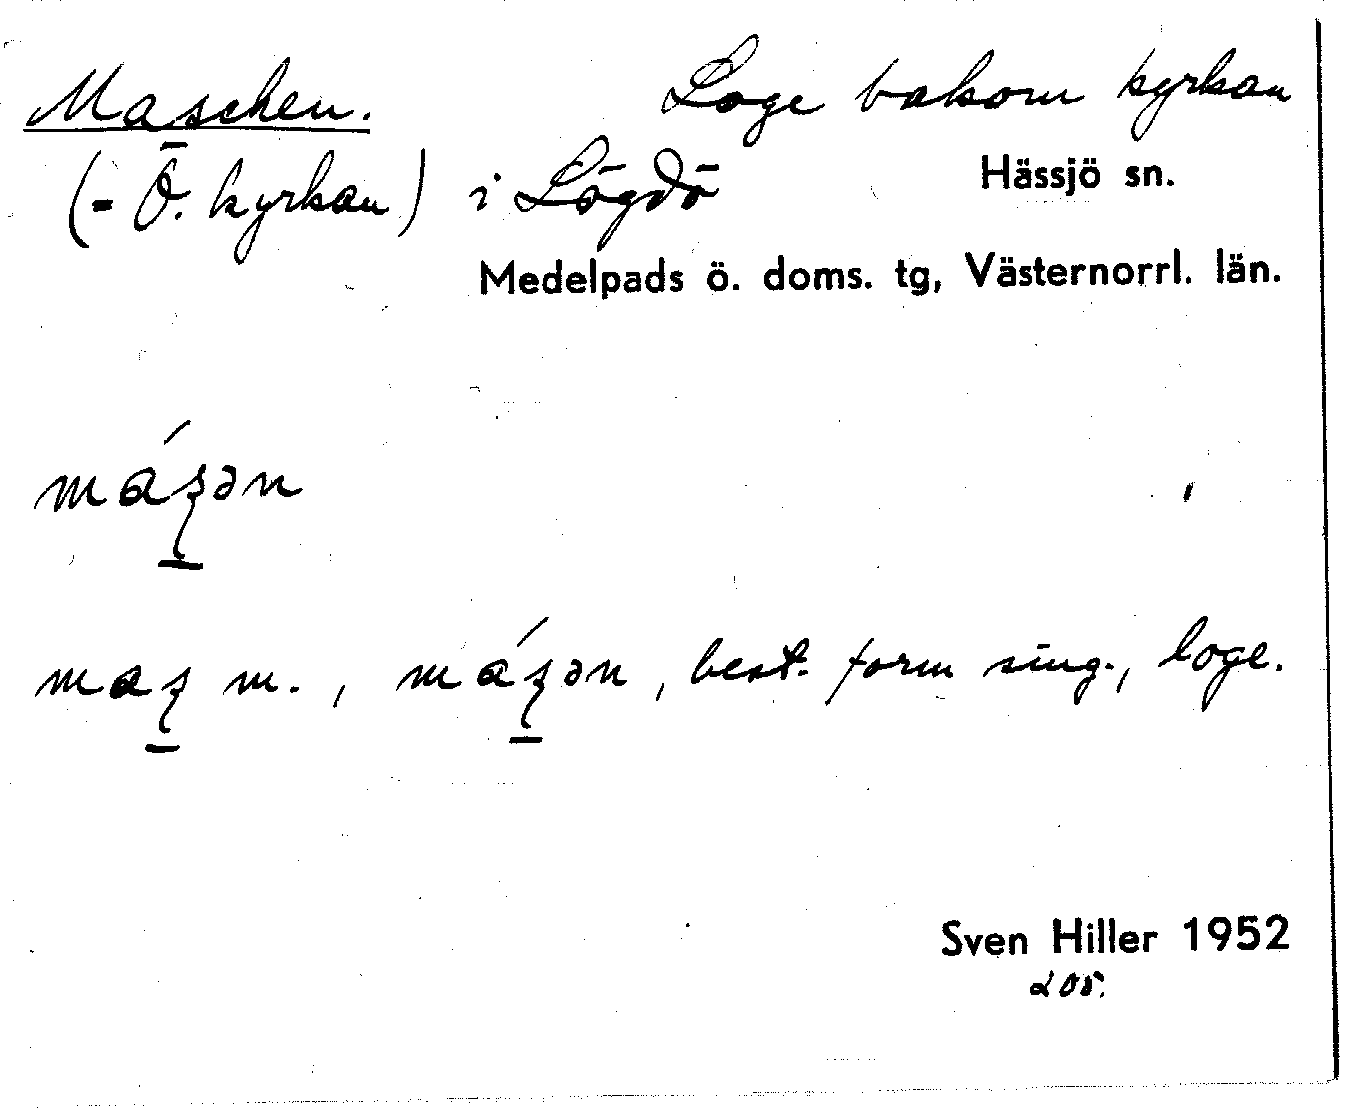 Maschen. Loge bakom kyrkan
(= Ö. kyrkan) i Lögdö Hässjö sn.
Medelpads ö. doms. tg, Västernorrl. län.
m. , best. form sing., loge.
Sven Hiller 1952